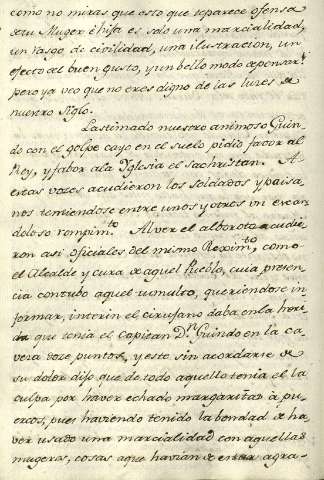 como no miras que esto que te parece ofensa
de tu Muger è hija es solo una marcialidad,
un rasgo de civilidad, una ilustracion, un
efecto del buen gusto, y un bello modo de pensar?
pero ya veo que no eres digno de las luces de
nuestro siglo.
Lastimado nuestro animoso Guin-
do con el golpe cayo en el suelo pidió favor al
Rey, y favor a la Iglesia el sachristan. A
estas vozes acudieron los soldados y paisa-
nos temiendose entre unos y otros un escan-
daloso rompim.to Al ver el alboroto acudie-
ron asi oficiales del mismo Rexim.to, como
el Alcalde y cura de aquel Pueblo, cuia presen-
cia contubo aquel tumulto, queriendose in-
formar, interin el cirujano daba en la heri-
da que tenia el Capitan D.n Guindo en la ca-
veza doze puntos, y este sin acordarse de
su dolor dijo que de todo aquello tenia el la
culpa por haver echado margaritas à pu-
ercos, pues haviendo tenido la bondad de ha-
ver usado una marcialidad con aquellas
mugeres, cosas a que havian de estar agra-